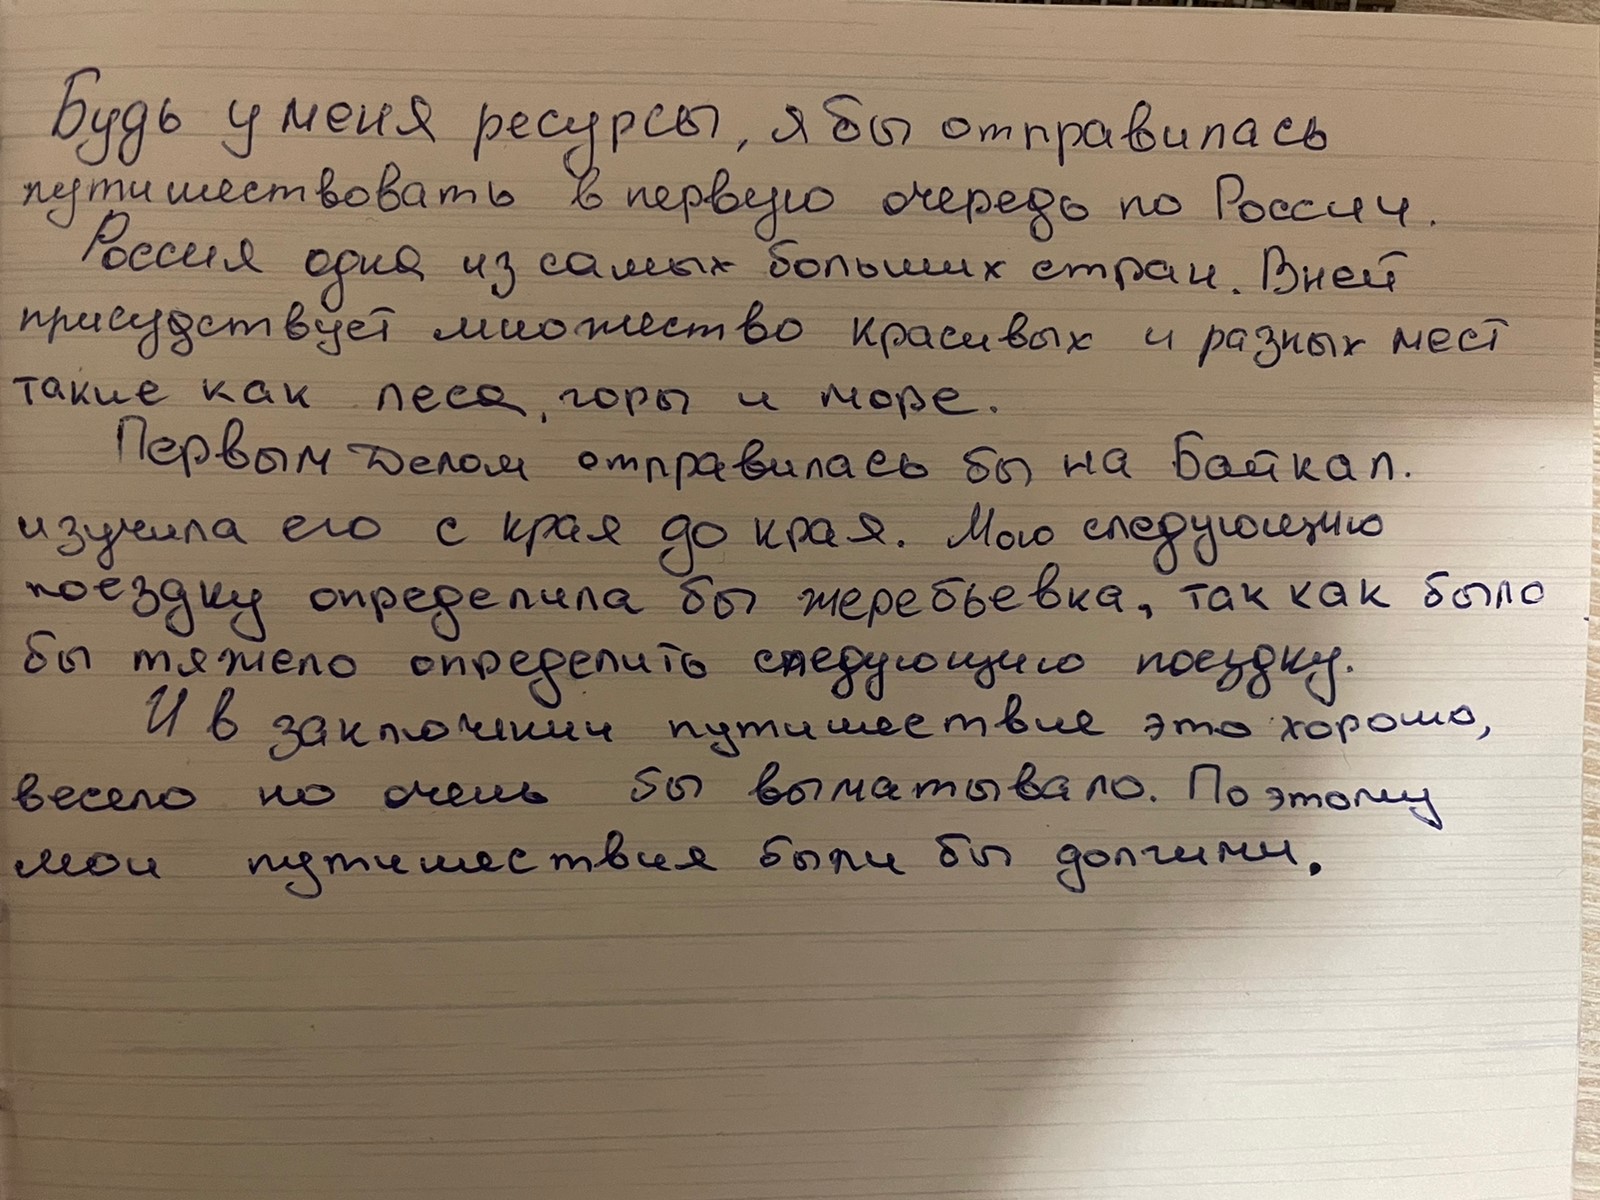 Будь у меня ресурсы, я бы отправилась
путишествовать в первую очередь по России.
Россия одна из самых больших стран. Вней
присудствует множество красивых и разных мест
такие как леса, горы и море.
Первым делом отправилась бы на Байкал.
изучила его с края до края. Мою следующию
поездку определила бы жеребьевка, так как было
бы тяжело определить следующию поездку.
И в заключении путишествие это хорошо,
весело но очень бы выматывало. Поэтому
мои путишествия были бы долгими.